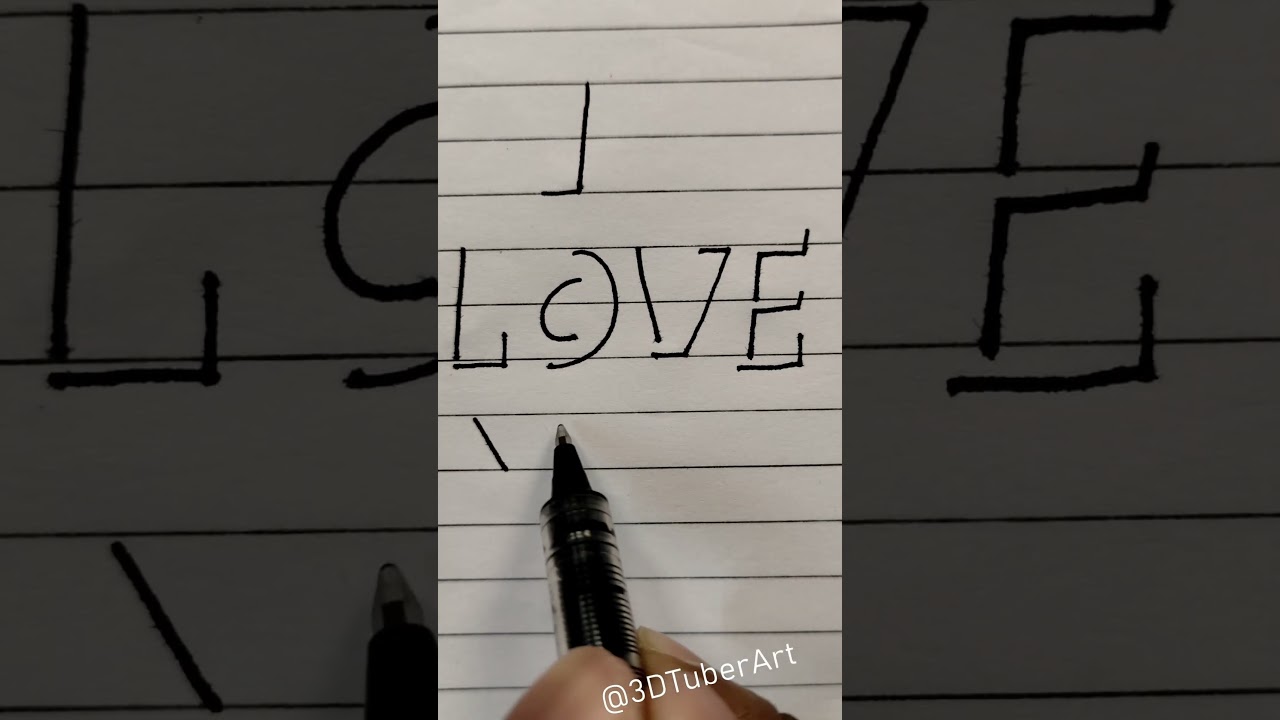 LOVE
@3DTuberArt